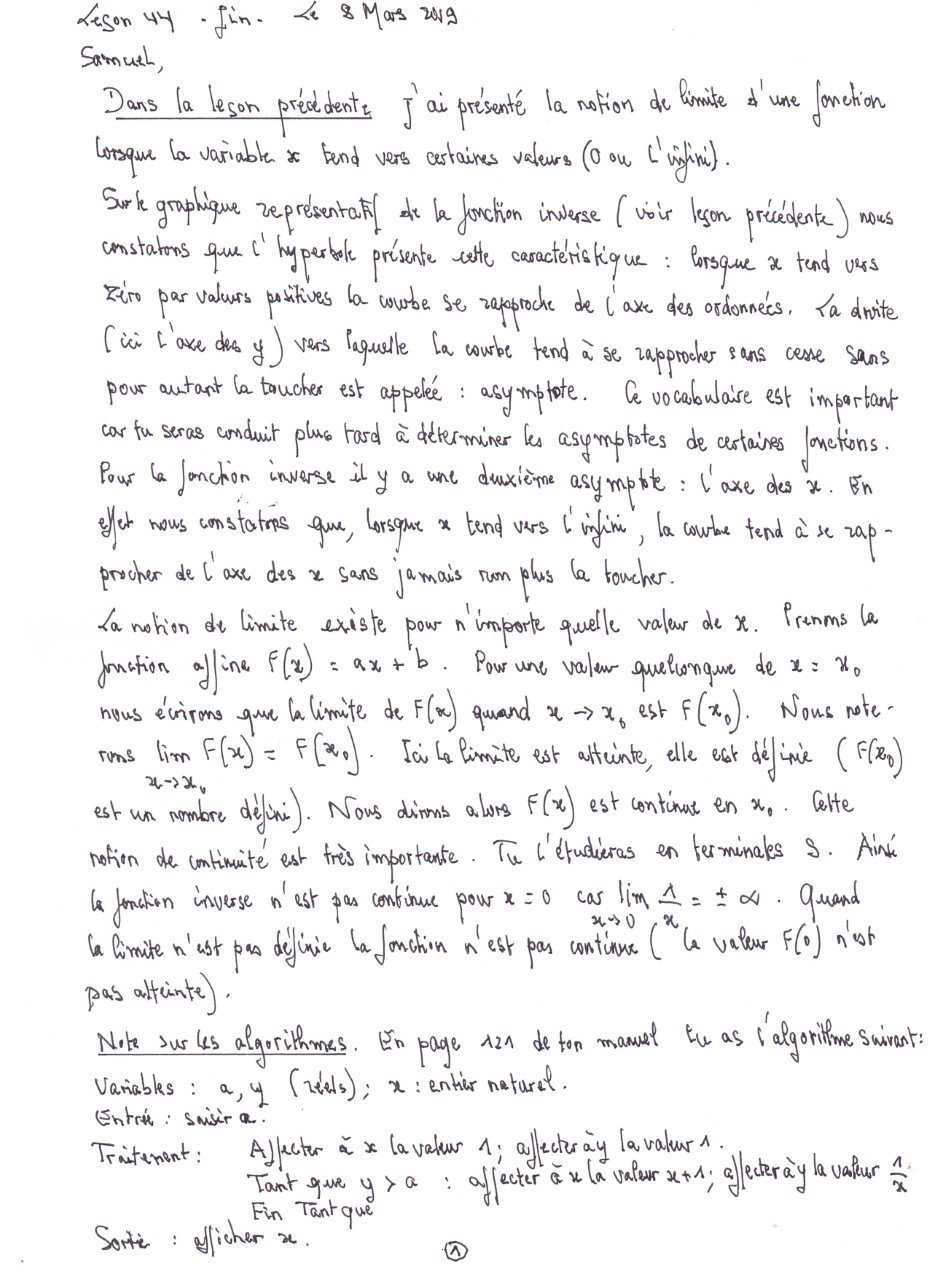 Leçon 44 - fin - Le 8 Mars 2019
Samuel,
Dans la leçon précédente j'ai présenté la notion de limite d'une fonction
lorsque la variable x tend vers certaines valeurs (0 ou l'infini).
Sur le graphique représentatif de la fonction inverse (voir leçon précédente) nous
constatons que l'hyperbole présente cette caractéristique : lorsque x tend vers
zéro par valeurs positives la courbe se rapproche de l'axe des ordonnées. La droite
(ici l'axe des y) vers laquelle la courbe tend à se rapprocher sans cesse sans
pour autant la toucher est appelée : asymptote. Ce vocabulaire est important
car tu seras conduit plus tard à déterminer les asymptotes de certaines fonctions.
Pour la fonction inverse il y a une deuxième asymptote : l'axe des x. En
effet nous constatons que, lorsque x tend vers l'infini, la courbe tend à se rap-
procher de l'axe des x sans jamais non plus la toucher.
La notion de limite existe pour n'importe quelle valeur de x. Prenons la
fonction affine F(x) = ax + b. Pour une valeur quelconque de x = x₀
nous écrirons que la limite de F(x) quand x → x₀ est F(x₀). Nous note-
rons lim F(x) = F(x₀). Ici la limite est atteinte, elle est définie (F(x₀)
x→x₀
est un nombre défini). Nous dirons alors F(x) est continue en x₀. Cette
notion de continuité est très importante. Tu l'étudieras en terminales S. Ainsi
la fonction inverse n'est pas continue pour x = 0 car lim 1/x = ± ∞. Quand
x→0
la limite n'est pas définie la fonction n'est pas continue (la valeur F(0) n'est
pas atteinte).
Note sur les algorithmes. En page 121 de ton manuel tu as l'algorithme suivant :
Variables : a, y (réels) ; x : entier naturel.
Entrée : saisir a.
Traitement : Affecter à x la valeur 1 ; affecter à y la valeur 1.
Tant que y > a : affecter à x la valeur x+1 ; affecter à y la valeur 1/x
Fin Tant que
Sortie : afficher x.
1